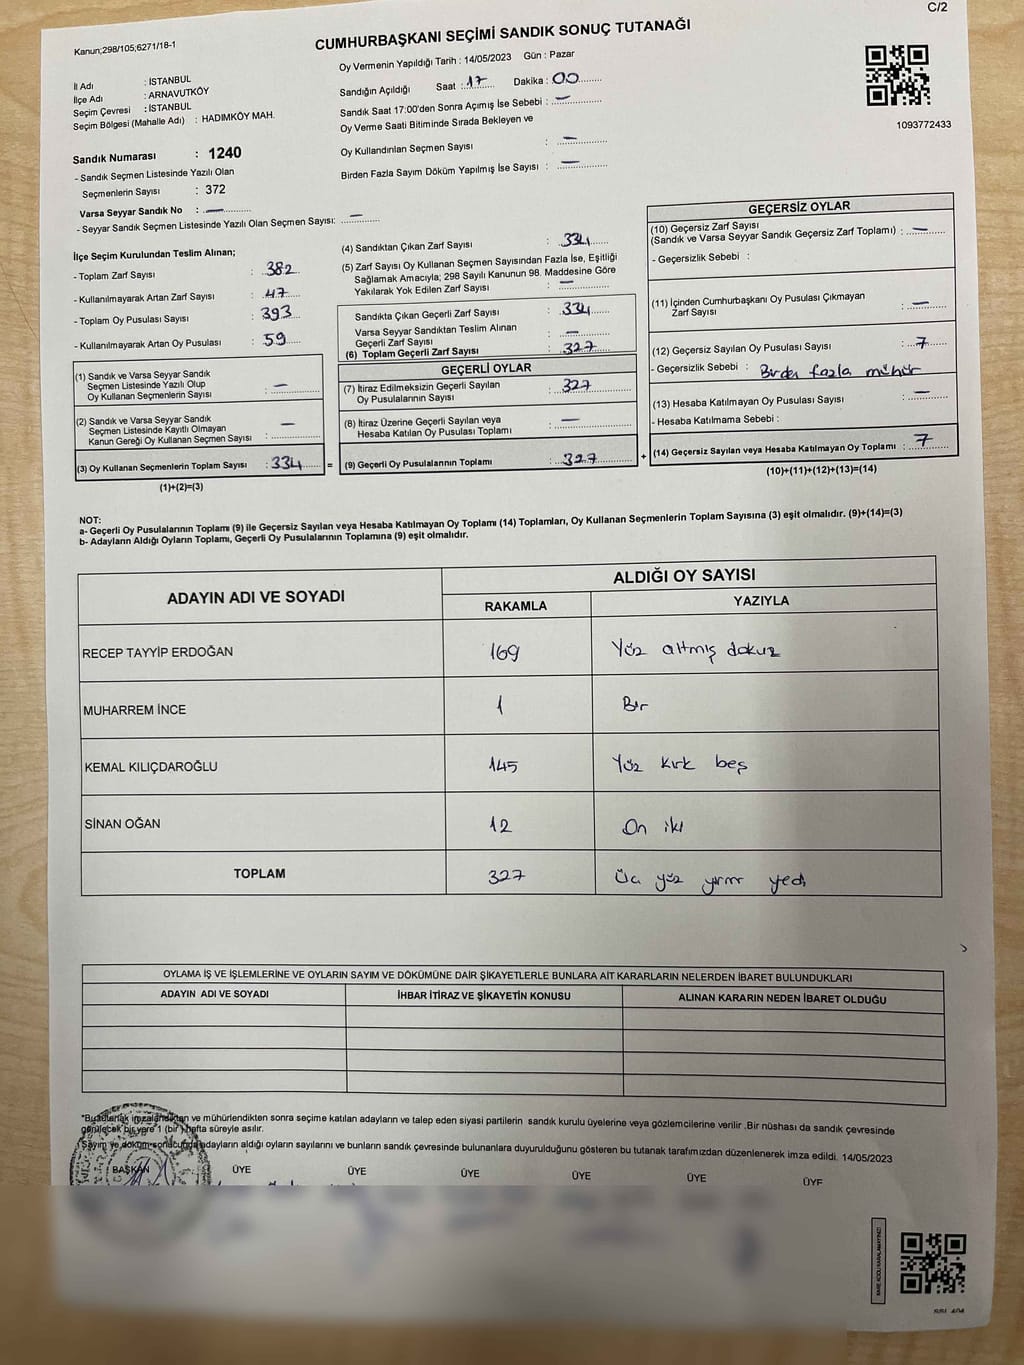 C/2
Kanun;298/105;6271/18-1
CUMHURBAŞKANI SEÇİMİ SANDIK SONUÇ TUTANAĞI
Oy Vermenin Yapıldığı Tarih : 14/05/2023 Gün : Pazar
İl Adı : İSTANBUL
İlçe Adı : ARNAVUTKÖY
Seçim Çevresi : İSTANBUL
Seçim Bölgesi (Mahalle Adı) : HADIMKÖY MAH.
Sandığın Açıldığı Saat : 17 Dakika : 00
Sandık Saat 17:00'den Sonra Açımış İse Sebebi : —
Oy Verme Saati Bitiminde Sırada Bekleyen ve
Oy Kullandırılan Seçmen Sayısı : —
Birden Fazla Sayım Döküm Yapılmış İse Sayısı : —
1093772433
Sandık Numarası : 1240
- Sandık Seçmen Listesinde Yazılı Olan
Seçmenlerin Sayısı : 372
Varsa Seyyar Sandık No : —
- Seyyar Sandık Seçmen Listesinde Yazılı Olan Seçmen Sayısı: —
İlçe Seçim Kurulundan Teslim Alınan;
- Toplam Zarf Sayısı : 382
- Kullanılmayarak Artan Zarf Sayısı : 47
- Toplam Oy Pusulası Sayısı : 393
- Kullanılmayarak Artan Oy Pusulası : 59
(1) Sandık ve Varsa Seyyar Sandık
Seçmen Listesinde Yazılı Olup
Oy Kullanan Seçmenlerin Sayısı : —
(2) Sandık ve Varsa Seyyar Sandık
Seçmen Listesinde Kayıtlı Olmayan
Kanun Gereği Oy Kullanan Seçmen Sayısı : —
(3) Oy Kullanan Seçmenlerin Toplam Sayısı : 334 =
(1)+(2)=(3)
(4) Sandıktan Çıkan Zarf Sayısı : 334
(5) Zarf Sayısı Oy Kullanan Seçmen Sayısından Fazla İse, Eşitliği
Sağlamak Amacıyla; 298 Sayılı Kanunun 98. Maddesine Göre
Yakılarak Yok Edilen Zarf Sayısı : —
Sandıkta Çıkan Geçerli Zarf Sayısı : 334
Varsa Seyyar Sandıktan Teslim Alınan
Geçerli Zarf Sayısı : —
(6) Toplam Geçerli Zarf Sayısı : 327
GEÇERLİ OYLAR
(7) İtiraz Edilmeksizin Geçerli Sayılan
Oy Pusulalarının Sayısı : 327
(8) İtiraz Üzerine Geçerli Sayılan veya
Hesaba Katılan Oy Pusulası Toplamı : —
(9) Geçerli Oy Pusulalarının Toplamı : 327 +
GEÇERSİZ OYLAR
(10) Geçersiz Zarf Sayısı
(Sandık ve Varsa Seyyar Sandık Geçersiz Zarf Toplamı) : —
- Geçersizlik Sebebi :
(11) İçinden Cumhurbaşkanı Oy Pusulası Çıkmayan
Zarf Sayısı : —
(12) Geçersiz Sayılan Oy Pusulası Sayısı : 7
- Geçersizlik Sebebi : Birden fazla mühür
(13) Hesaba Katılmayan Oy Pusulası Sayısı : —
- Hesaba Katılmama Sebebi :
(14) Geçersiz Sayılan veya Hesaba Katılmayan Oy Toplamı : 7
(10)+(11)+(12)+(13)=(14)
NOT:
a- Geçerli Oy Pusulalarının Toplamı (9) ile Geçersiz Sayılan veya Hesaba Katılmayan Oy Toplamı (14) Toplamları, Oy Kullanan Seçmenlerin Toplam Sayısına (3) eşit olmalıdır. (9)+(14)=(3)
b- Adayların Aldığı Oyların Toplamı, Geçerli Oy Pusulalarının Toplamına (9) eşit olmalıdır.
ADAYIN ADI VE SOYADI
ALDIĞI OY SAYISI
RAKAMLA YAZIYLA
RECEP TAYYİP ERDOĞAN 169 Yüz altmış dokuz
MUHARREM İNCE 1 Bir
KEMAL KILIÇDAROĞLU 145 Yüz kırk beş
SİNAN OĞAN 12 On iki
TOPLAM 327 Üç yüz yirmi yedi
OYLAMA İŞ VE İŞLEMLERİNE VE OYLARIN SAYIM VE DÖKÜMÜNE DAİR ŞİKAYETLERLE BUNLARA AİT KARARLARIN NELERDEN İBARET BULUNDUKLARI
ADAYIN ADI VE SOYADI İHBAR İTİRAZ VE ŞİKAYETİN KONUSU ALINAN KARARIN NEDEN İBARET OLDUĞU
*Bu tutanak imzalandıktan ve mühürlendikten sonra seçime katılan adayların ve talep eden siyasi partilerin sandık kurulu üyelerine veya gözlemcilerine verilir .Bir nüshası da sandık çevresinde
görülecek bir yere 1 (bir) hafta süreyle asılır.
Sayım ve döküm sonucunda adayların aldığı oyların sayılarını ve bunların sandık çevresinde bulunanlara duyurulduğunu gösteren bu tutanak tarafımızdan düzenlenerek imza edildi. 14/05/2023
BAŞKAN ÜYE ÜYE ÜYE ÜYE ÜYE ÜYE